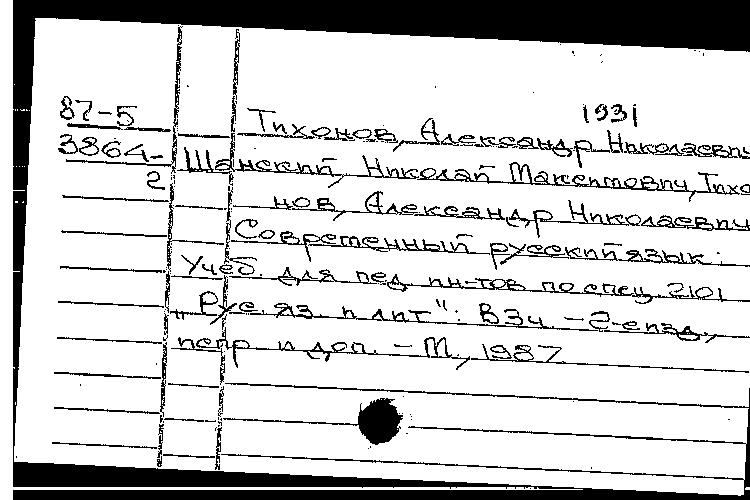 1931
87-5 Тихонов, Александр Николаевич
3864- Шанский, Николай Максимович, Тихо
2 нов, Александр Николаевич
Современный русский язык:
Учеб. для пед. ин-тов по спец. 2101
„Рус. яз. и лит": В 3 ч. – 2-е изд.,
испр. и доп. – М., 1987